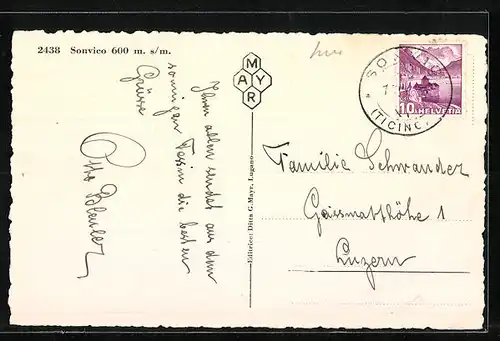 2438 Sonvico 600 m. s/m.
MAYR
Ihnen allen sendet aus dem
sonnigen Tessin die besten
Grüsse
Otto Bleuler
Editrice: Ditta G. Mayr, Lugano.
SONVICO
(TICINO)
10 HELVETIA
Familie Schwander
Geissmatthöhe 1
Luzern